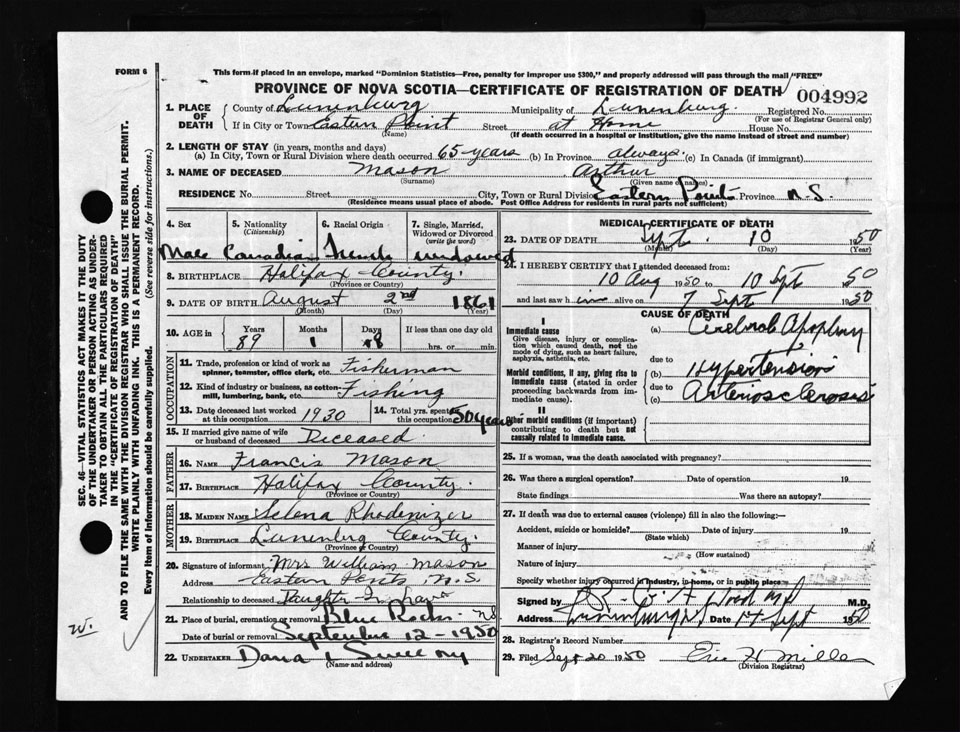 FORM 6
This form if placed in an envelope, marked "Dominion Statistics—Free, penalty for improper use $300," and properly addressed will pass through the mail "FREE"
PROVINCE OF NOVA SCOTIA—CERTIFICATE OF REGISTRATION OF DEATH
004992
1. PLACE OF DEATH County of Lunenburg Municipality of Lunenburg Registered No.
(For use of Registrar General only)
If in City or Town Eastern Point Street at Home House No.
(Name) (If death occurred in a hospital or institution, give the name instead of street and number)
2. LENGTH OF STAY (in years, months and days)
(a) In City, Town or Rural Division where death occurred 65-years (b) In Province always. (c) In Canada (if immigrant)
3. NAME OF DECEASED Mason Arthur
(Surname) (Given name or names)
RESIDENCE No. Street City, Town or Rural Division Eastern Points Province N.S.
(Residence means usual place of abode. Post Office Address for residents in rural parts not sufficient)
4. Sex 5. Nationality (Citizenship) 6. Racial Origin 7. Single, Married, Widowed or Divorced (write the word)
Male Canadian French widowed
8. BIRTHPLACE Halifax County.
(Province or Country)
9. DATE OF BIRTH August 2nd 1861
(Month) (Day) (Year)
10. AGE in Years Months Days If less than one day old
89 1 8 hrs. or min.
OCCUPATION
11. Trade, profession or kind of work as spinner, teamster, office clerk, etc. Fisherman
12. Kind of industry or business, as cotton-mill, lumbering, bank, etc. Fishing
13. Date deceased last worked at this occupation 1930 14. Total yrs. spent this occupation 50 years
15. If married give name of wife or husband of deceased Deceased
FATHER
16. NAME Francis Mason
17. BIRTHPLACE Halifax County.
(Province or Country)
MOTHER
18. MAIDEN NAME Selena Rhodenizer
19. BIRTHPLACE Lunenburg County.
(Province or Country)
20. Signature of informant Mrs William Mason
Address Eastern Points N.S
Relationship to deceased Daughter In Law
21. Place of burial, cremation or removal Blue Rocks N.S
Date of burial or removal September 12-1950
22. UNDERTAKER Dana
(Name and address)
MEDICAL CERTIFICATE OF DEATH
23. DATE OF DEATH Sept. 10 1950
(Month) (Day) (Year)
24. I HEREBY CERTIFY that I attended deceased from:
10 Aug 1950 to 10 Sept 1950
and last saw him alive on 7 Sept 1950
CAUSE OF DEATH
I
Immediate cause
Give disease, injury or complication which caused death, not the mode of dying, such as heart failure, asphyxia, asthenia, etc.
(a) Cerebral Apoplexy
due to
Morbid conditions, if any, giving rise to immediate cause (stated in order proceeding backwards from immediate cause).
(b) Hypertension
due to
(c) Arteriosclerosis
II
Other morbid conditions (if important) contributing to death but not causally related to immediate cause.
25. If a woman, was the death associated with pregnancy?
26. Was there a surgical operation? Date of operation 19
State findings Was there an autopsy?
27. If death was due to external causes (violence) fill in also the following:—
Accident, suicide or homicide? Date of injury 19
(State which)
Manner of injury
(How sustained)
Nature of injury
Specify whether injury occurred in industry, in home, or in public place
Signed by M.D.
Address Lunenburg Date 14 Sept 1950
28. Registrar's Record Number
29. Filed Sept 20 1950 Eric H Miller
(Division Registrar)
SEC. 46—VITAL STATISTICS ACT MAKES IT THE DUTY OF THE UNDERTAKER OR PERSON ACTING AS UNDERTAKER TO OBTAIN ALL THE PARTICULARS REQUIRED IN THE "CERTIFICATE OF REGISTRATION OF DEATH" AND TO FILE THE SAME WITH THE DIVISION REGISTRAR WHO SHALL ISSUE THE BURIAL PERMIT.
WRITE PLAINLY WITH UNFADING INK. THIS IS A PERMANENT RECORD.
Every item of Information should be carefully supplied. (See reverse side for instructions.)
W.